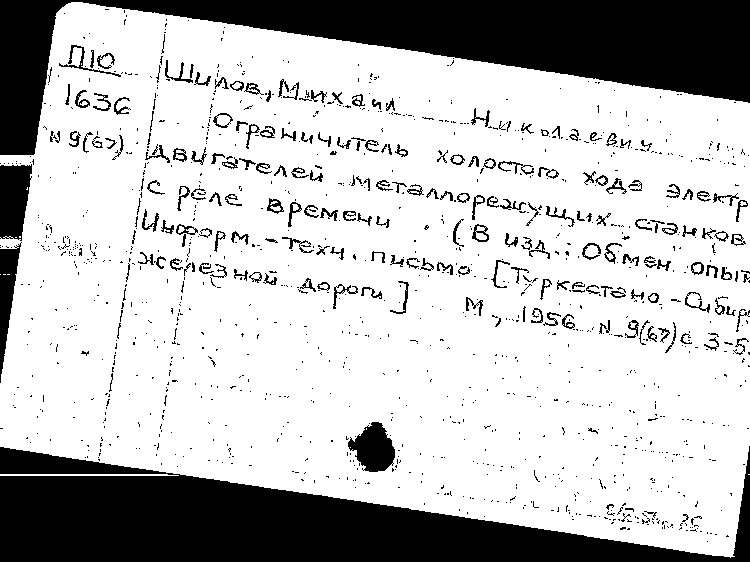 П10
1636
N 9(67)
Шилов, Михаил Николаевич
Ограничитель холостого хода электр
двигателей металлорежущих станков
с реле времени. (В изд.: Обмен опыт
Информ.-техн. письмо [Туркестано-Сибирс
железной дороги] М., 1956 N 9(67) с 3-5.